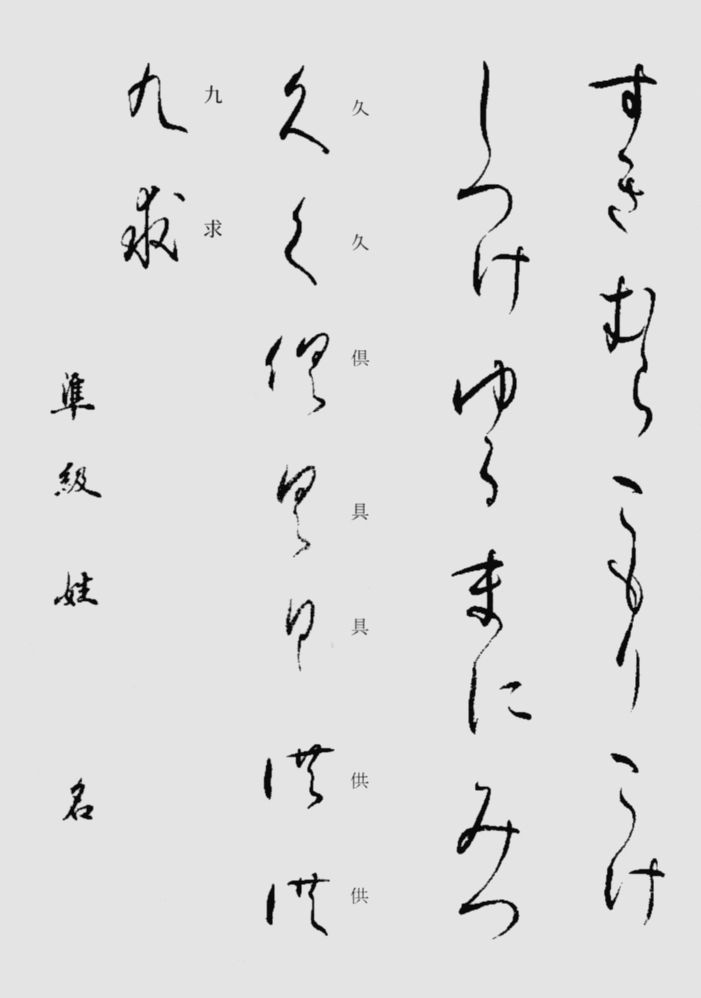 すき むら こもり こけ
しつけ ゆる まに みつ
久 久 倶 具 具 供 供
久 く 倶 具 具 供 供
九 求
九 求
準級 姓 名